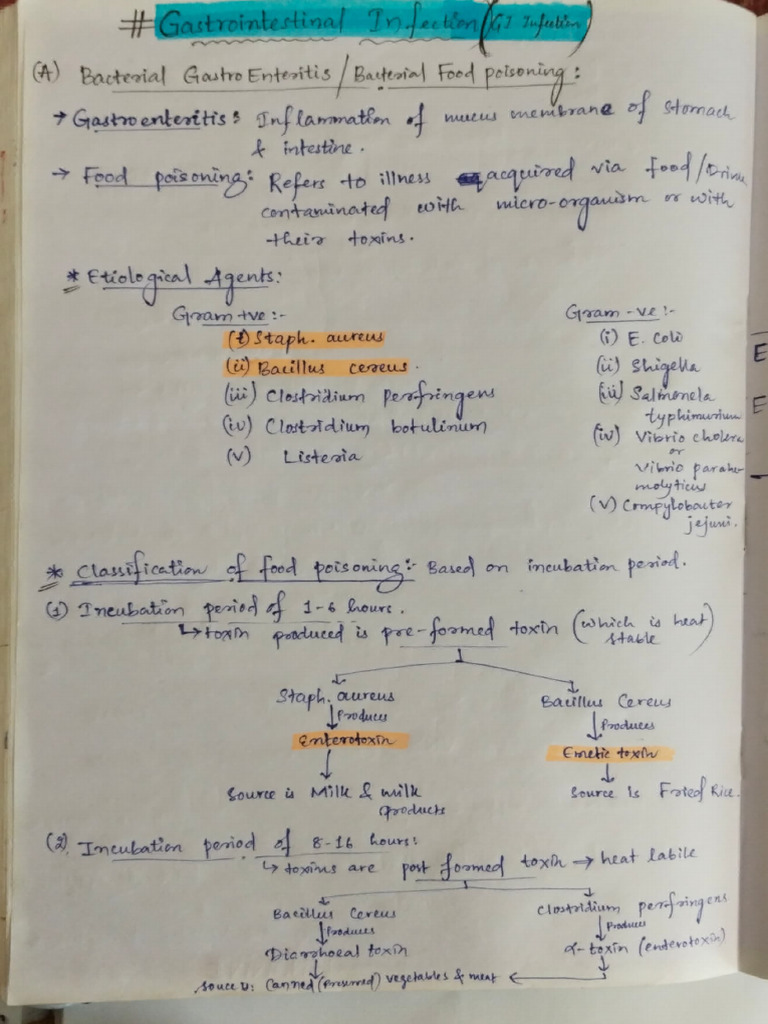 # Gastrointestinal Infection (GI Infection)
(A) Bacterial GastroEnteritis / Bacterial Food poisoning :
→ Gastroenteritis : Inflammation of mucus membrane of stomach
& intestine .
→ Food poisoning : Refers to illness acquired via food / Drink
contaminated with micro-organism or with
their toxins.
* Etiological Agents :
Gram +ve :- Gram -ve :-
(i) Staph. aureus (i) E. Coli
(ii) Bacillus cereus . (ii) Shigella
(iii) Clostridium perfringens (iii) Salmonela
typhimurium
(iv) Clostridium botulinum (iv) Vibrio cholera
or
(v) Listeria Vibrio parahe-
molyticus
(v) Compylobacter
jejuni.
* Classification of food poisoning :- Based on incubation period.
(1) Incubation period of 1-6 hours .
↳ toxin produced is pre-formed toxin (which is heat
stable)
Staph. aureus Bacillus Cereus
↓ Produces ↓ Produces
Enterotoxin Emetic toxin
↓ ↓
Source is Milk & milk Source is Fried Rice.
products
(2) Incubation period of 8-16 hours :
↳ toxins are post formed toxin → heat labile
Bacillus Cereus Clostridium perfringens
↓ Produces ↓ Produces
Diarrhoeal toxin α-toxin (enterotoxin)
Souce is: Canned (preserved) vegetables & meat ←
E
E